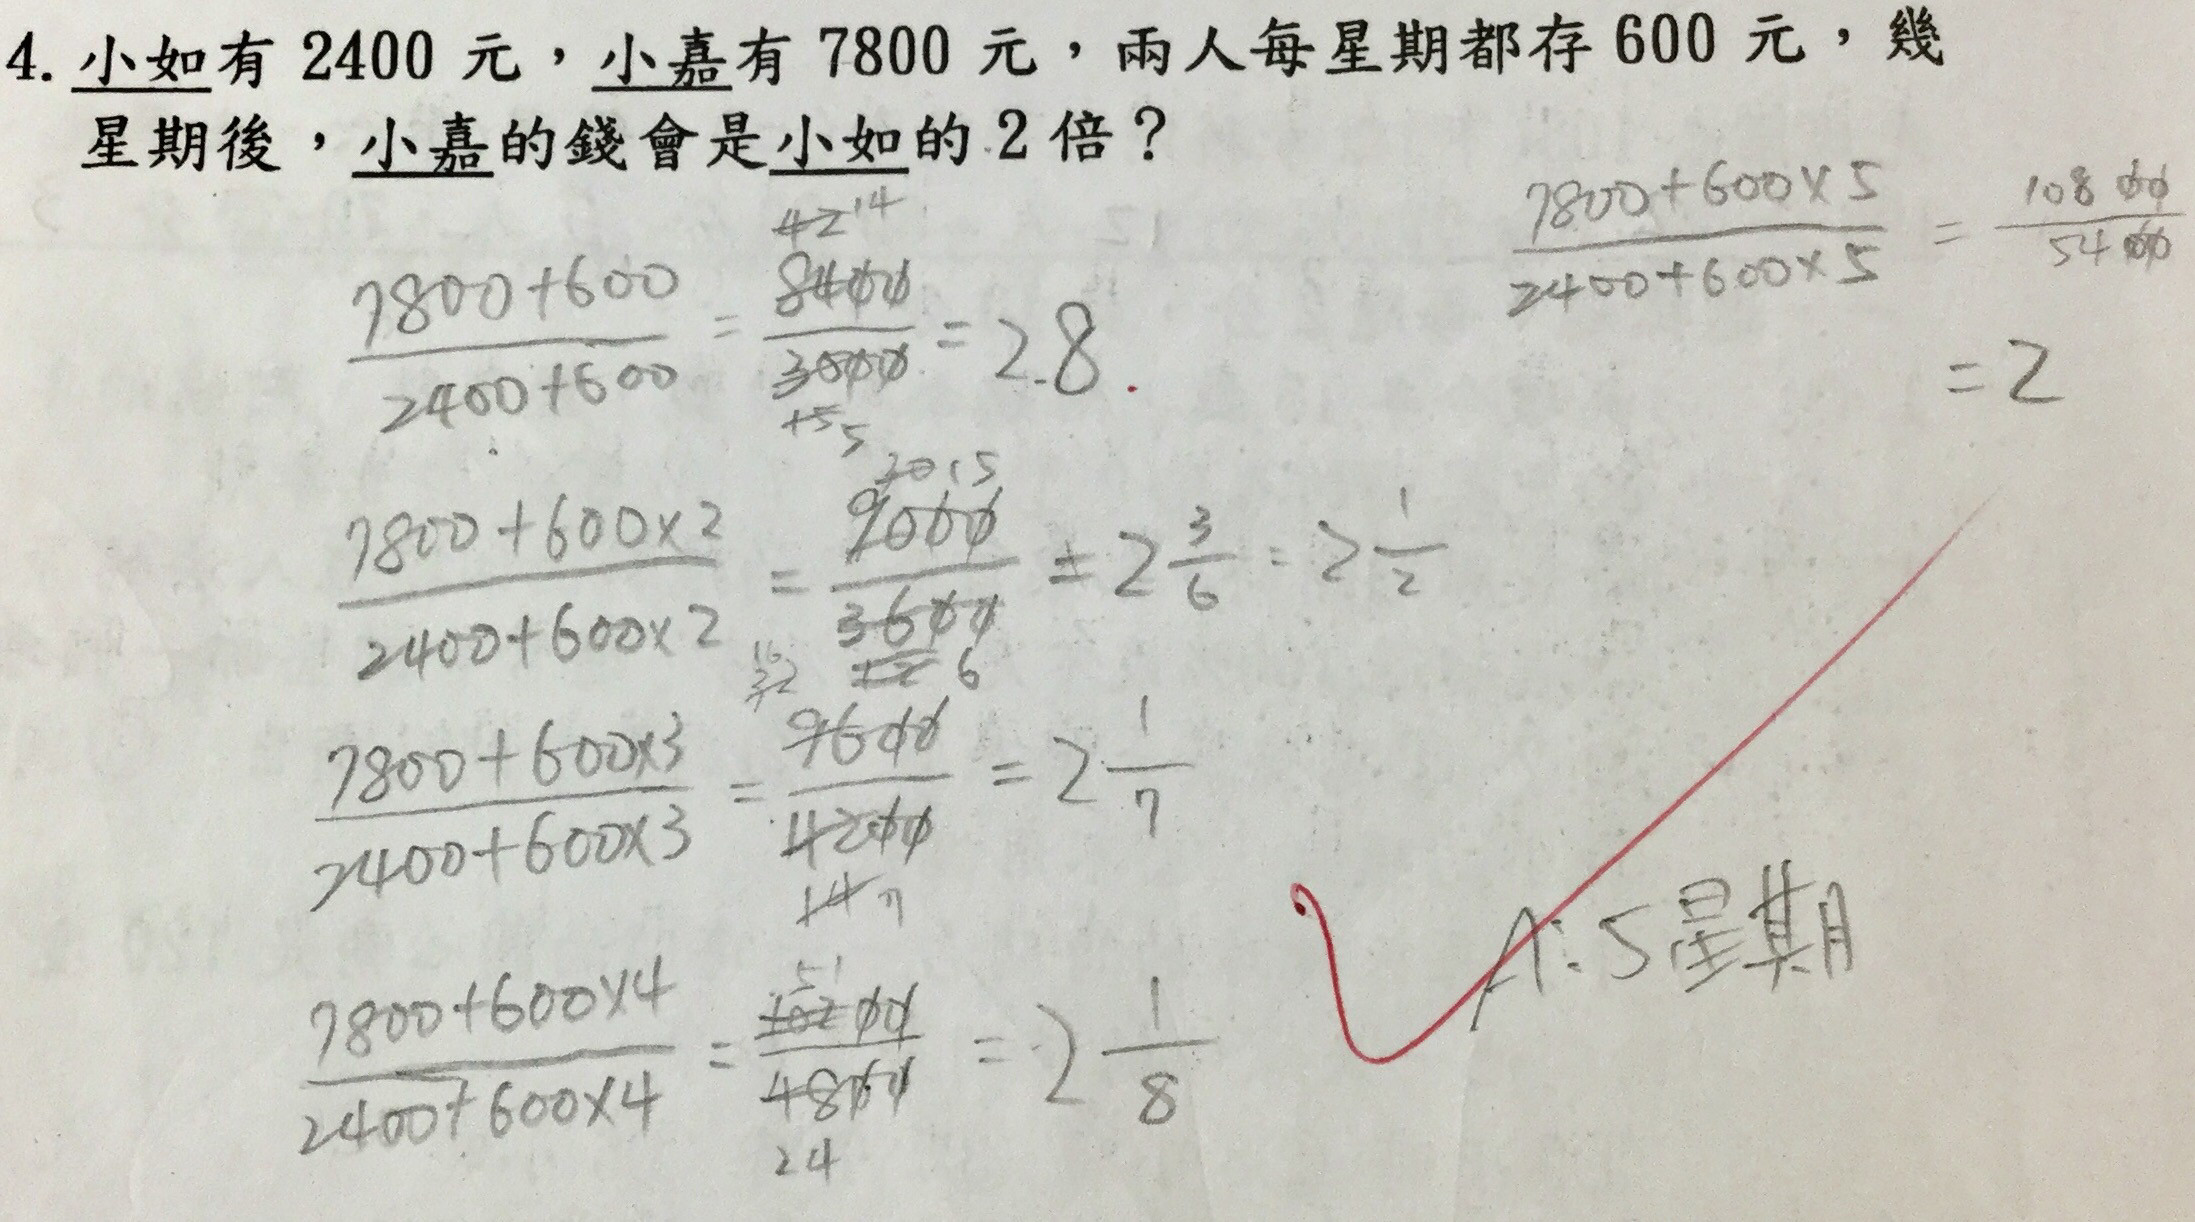 4. 小如有 2400 元，小嘉有 7800 元，兩人每星期都存 600 元，幾
星期後，小嘉的錢會是小如的 2 倍？
42 14
7800+600 / 2400+600 = 8400 / 3000 = 2.8
15 5
30 15
7800+600×2 / 2400+600×2 = 9000 / 3600 = 2 3/6 = 2 1/2
12 6
16
32
7800+600×3 / 2400+600×3 = 9600 / 4200 = 2 1/7
14 7
51
7800+600×4 / 2400+600×4 = 10200 / 4800 = 2 1/8
24
7800+600×5 / 2400+600×5 = 10800 / 5400
= 2
A: 5星期